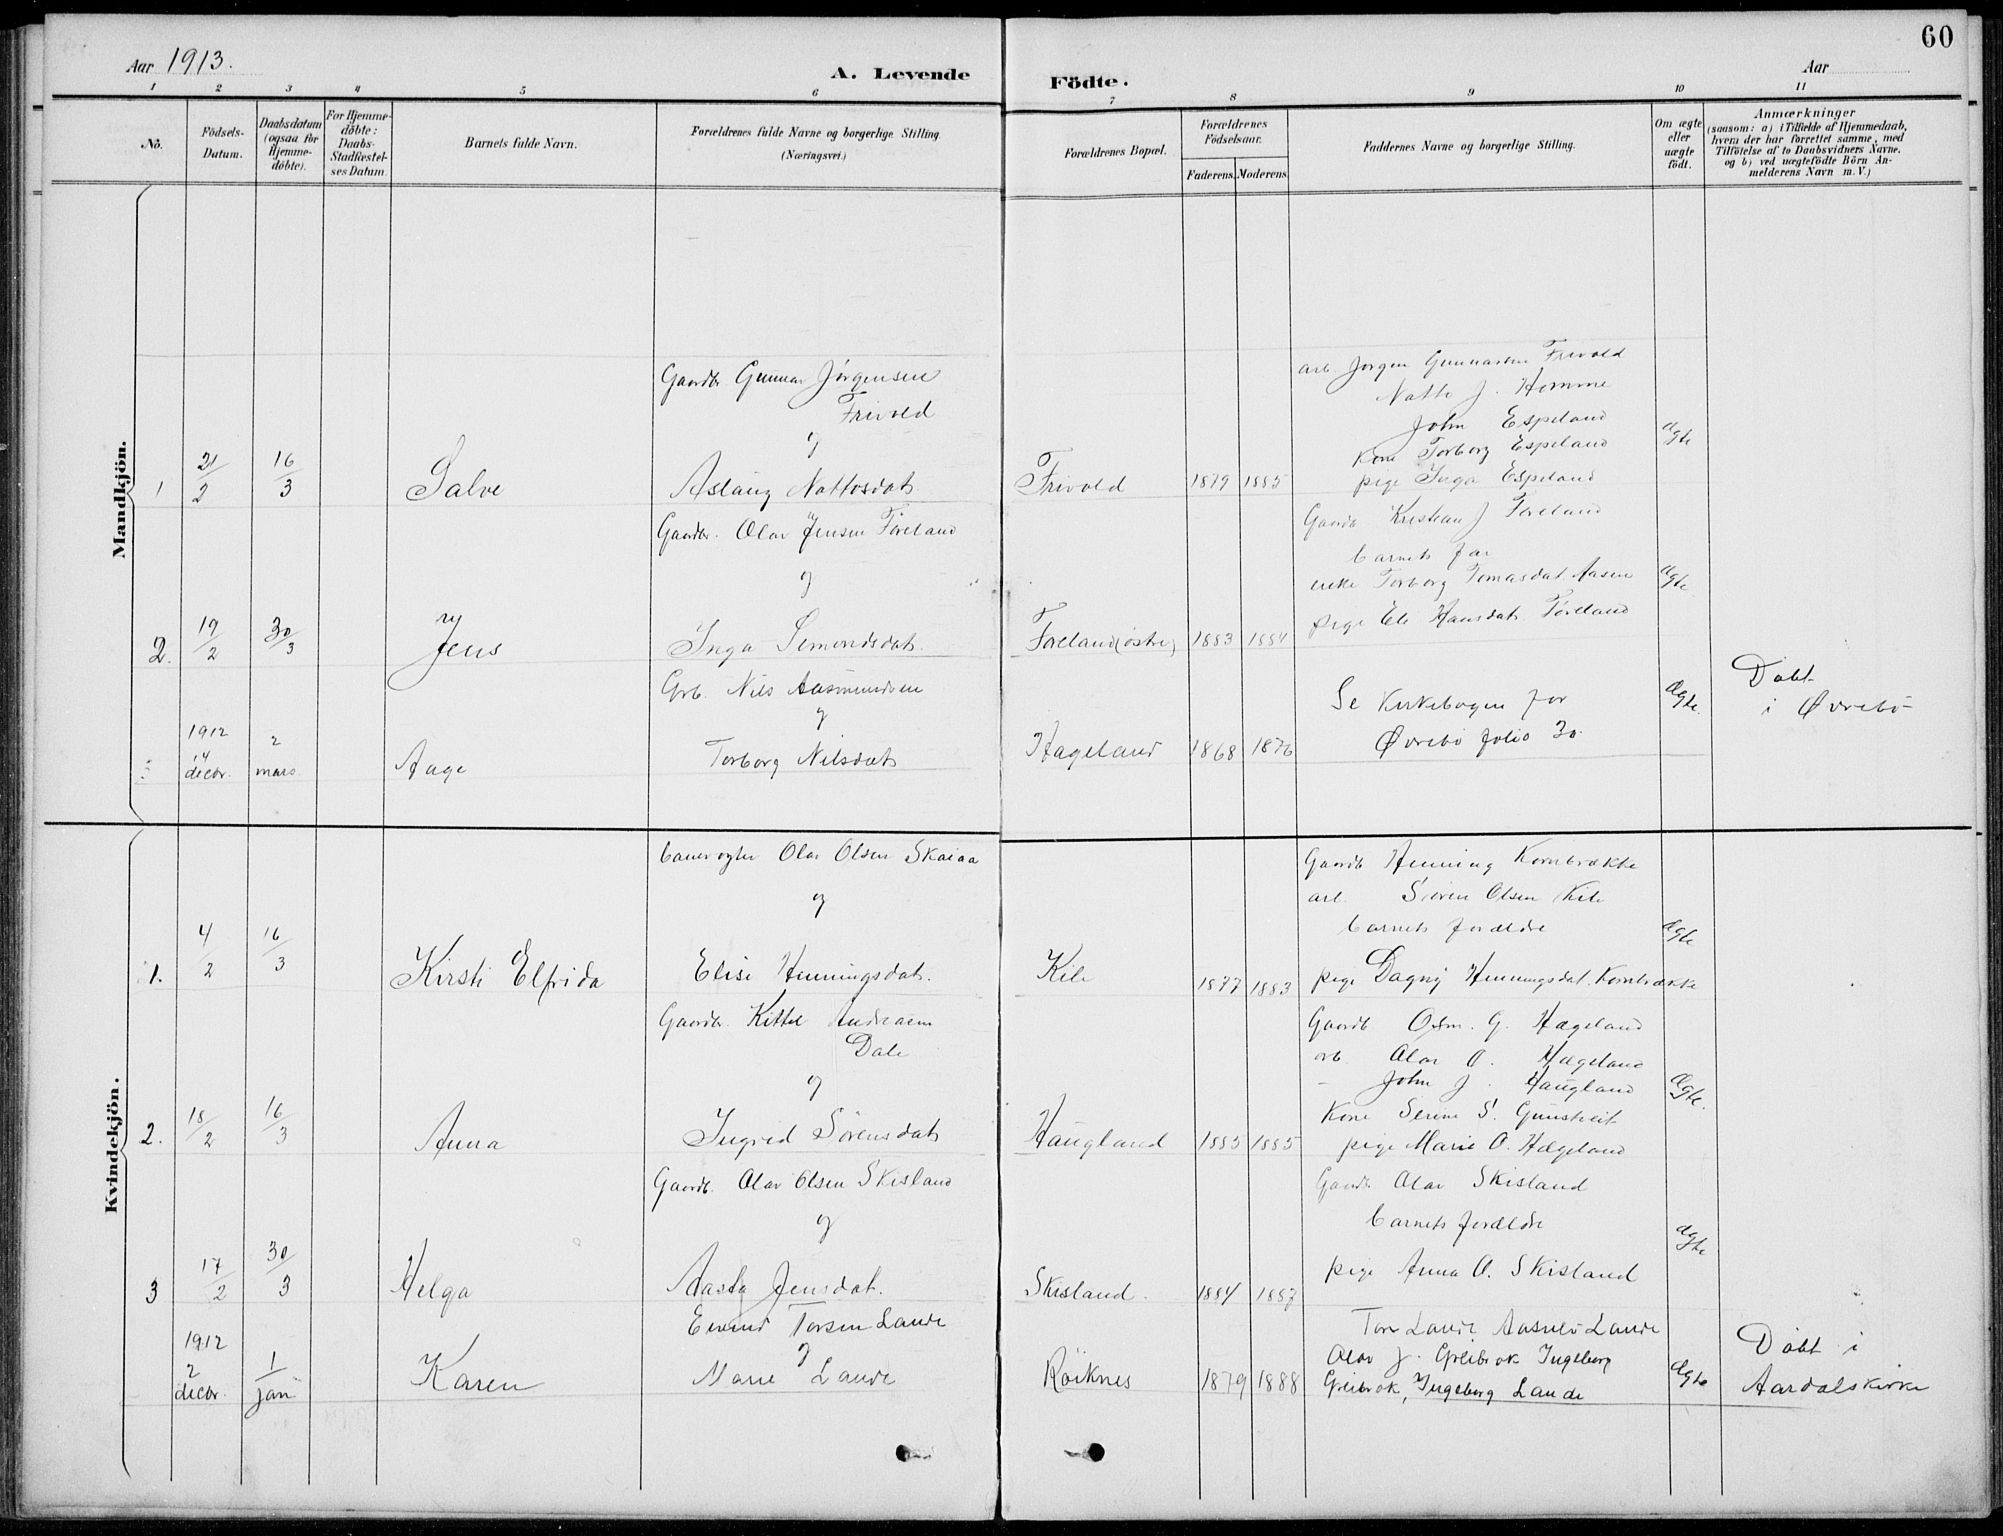 60
Aar 1913.
A. Levende
Födte.
Aar
1 2 3 4 5 6 7 8 9 10 11
No.
Födsels-
Datum.
Daabsdatum
(ogsaa for
Hjemme-
døbte).
For Hjemme-
døbte:
Daabs-
Stadfæstel-
ses Datum.
Barnets fulde Navn.
Forældrenes fulde Navne og borgerlige Stilling.
(Næringsvei.)
Forældrenes Bopæl.
Forældrenes
Födselsaar.
Faderens. Moderens.
Faddernes Navne og borgerlige Stilling.
Om ægte
eller
uægte
födt.
Anmærkninger
(saasom: a) i Tilfælde af Hjemmedaab,
hvem der har forrettet samme, med
Tilföielse af to Daabsvidners Navne,
og b) ved uægtefödte Börn An-
melderens Navn m. V.)
Mandkjön.
1
21/2
16/3
Salve
Gaardbr. Gunnar Jörgensen
Frivold
og
Aslaug Nattosdat
Frivold
1879 1885
arb Jorgen Gunnarsen Frivold
Natto J. Homme
John Espeland
Kone Torborg Espeland
pige Inga Espeland
ægte
2.
19/2
30/3
Jens
Gaardbr. Olav Jensen Föreland
og
Inga Simondsdat.
Foreland (östre)
1883 1884
Gaardb Kristian J Foreland
barnets far
enke Torborg Tomasdat Aasen
pige Eli Hansdat. Föreland
ægte
3
1912
14
decbr.
2
mars
Aage
Grb. Nils Aasmundsen
og
Torborg Nilsdat
Hageland
1868 1876
Se Kirkebogen for
Øvrebö folio 30.
ægte.
Döbt
i Øvrebö
Kvindekjön.
1.
4/2
16/3
Kirsti Elfrida
banevogter Olav Olsen Skaiaa
og
Elise Henningsdat.
Kile
1877 1883
Gaardb Henning Kornbrække
arb. Sören Olsen Kile
barnets forældre
pige Dagny Henningsdat. Kornbrække
ægte
2.
18/2
16/3
Anna
Gaardbr. Kittel Andreasen
Dale
og
Ingrid Sörensdat
Haugland
1885 1885
Gaardb Osm. G. Hægeland
arb. Olav O. Hægeland
- John J. Haugland
Kone Serine S. Gunstveit
pige Marie O. Hægeland
Ægte.
3
17/2
30/3
Helga
Gaardb. Olav Olsen Skisland
og
Aasta Jensdat.
Skisland.
1884 1887
Gaardb Olav Skisland
barnets forældre
pige Anna O. Skisland
ægte
1912
2
decbr.
1
jan
Karen
Eivind Torsen Lande
og
Marie Lande
Röiknes
1879 1888
Tore Lande Aasulv Lande
Olav J. Greibrok Ingeborg
Greibrok, Ingeborg Lande
ægte
Döbt i
Aardalskirke